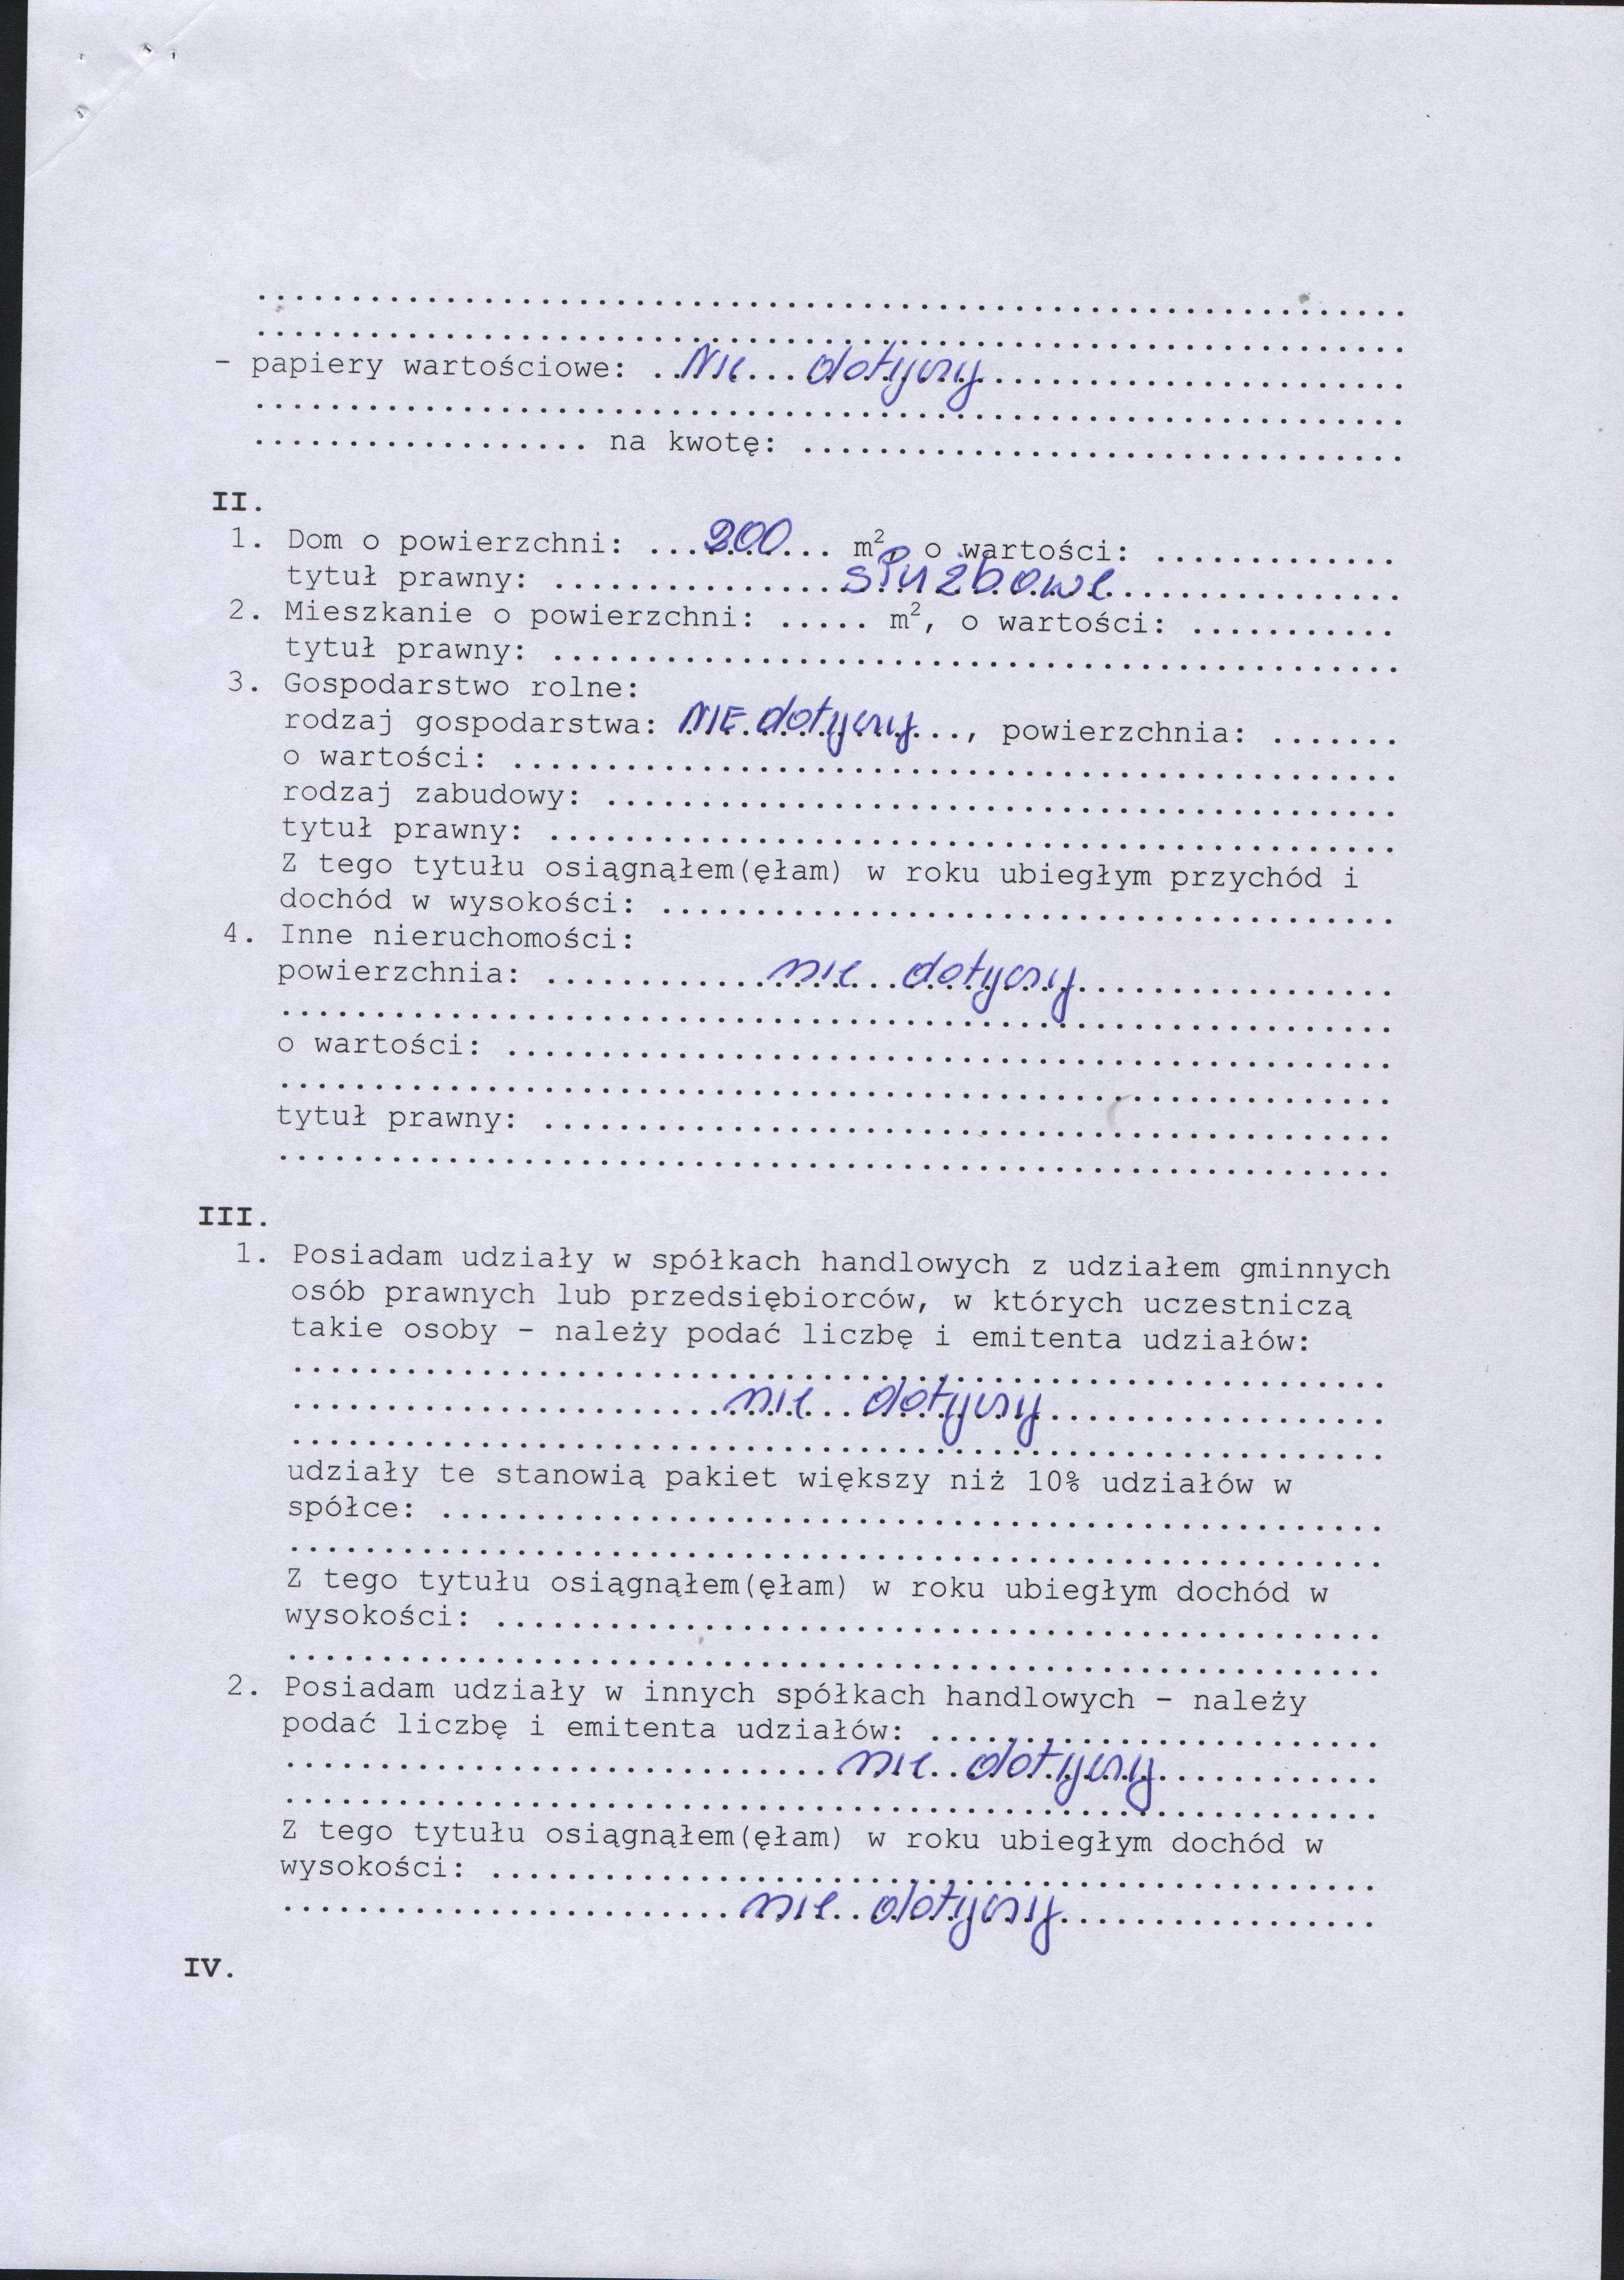 ......................................................................
......................................................................
- papiery wartościowe: ..Nie...dotyczy.......................
......................................................................
.................. na kwotę: ................................
II.
1. Dom o powierzchni: ...200... m², o wartości: .............
tytuł prawny: ...............służbowe................
2. Mieszkanie o powierzchni: ..... m², o wartości: ...........
tytuł prawny: .............................................
3. Gospodarstwo rolne:
rodzaj gospodarstwa: NIE.dotyczy..., powierzchnia: .......
o wartości: ...............................................
rodzaj zabudowy: ..........................................
tytuł prawny: .............................................
Z tego tytułu osiągnąłem(ęłam) w roku ubiegłym przychód i
dochód w wysokości: .......................................
4. Inne nieruchomości:
powierzchnia: ............nie...dotyczy.................
...........................................................
o wartości: ...............................................
...........................................................
tytuł prawny: .............................................
...........................................................
III.
1. Posiadam udziały w spółkach handlowych z udziałem gminnych
osób prawnych lub przedsiębiorców, w których uczestniczą
takie osoby - należy podać liczbę i emitenta udziałów:
..........................................................
.......................nie...dotyczy..................
..........................................................
udziały te stanowią pakiet większy niż 10% udziałów w
spółce: ..................................................
..........................................................
Z tego tytułu osiągnąłem(ęłam) w roku ubiegłym dochód w
wysokości: ...............................................
..........................................................
2. Posiadam udziały w innych spółkach handlowych - należy
podać liczbę i emitenta udziałów: ........................
.............................nie..dotyczy............
..........................................................
Z tego tytułu osiągnąłem(ęłam) w roku ubiegłym dochód w
wysokości: ...............................................
........................nie..dotyczy.................
IV.